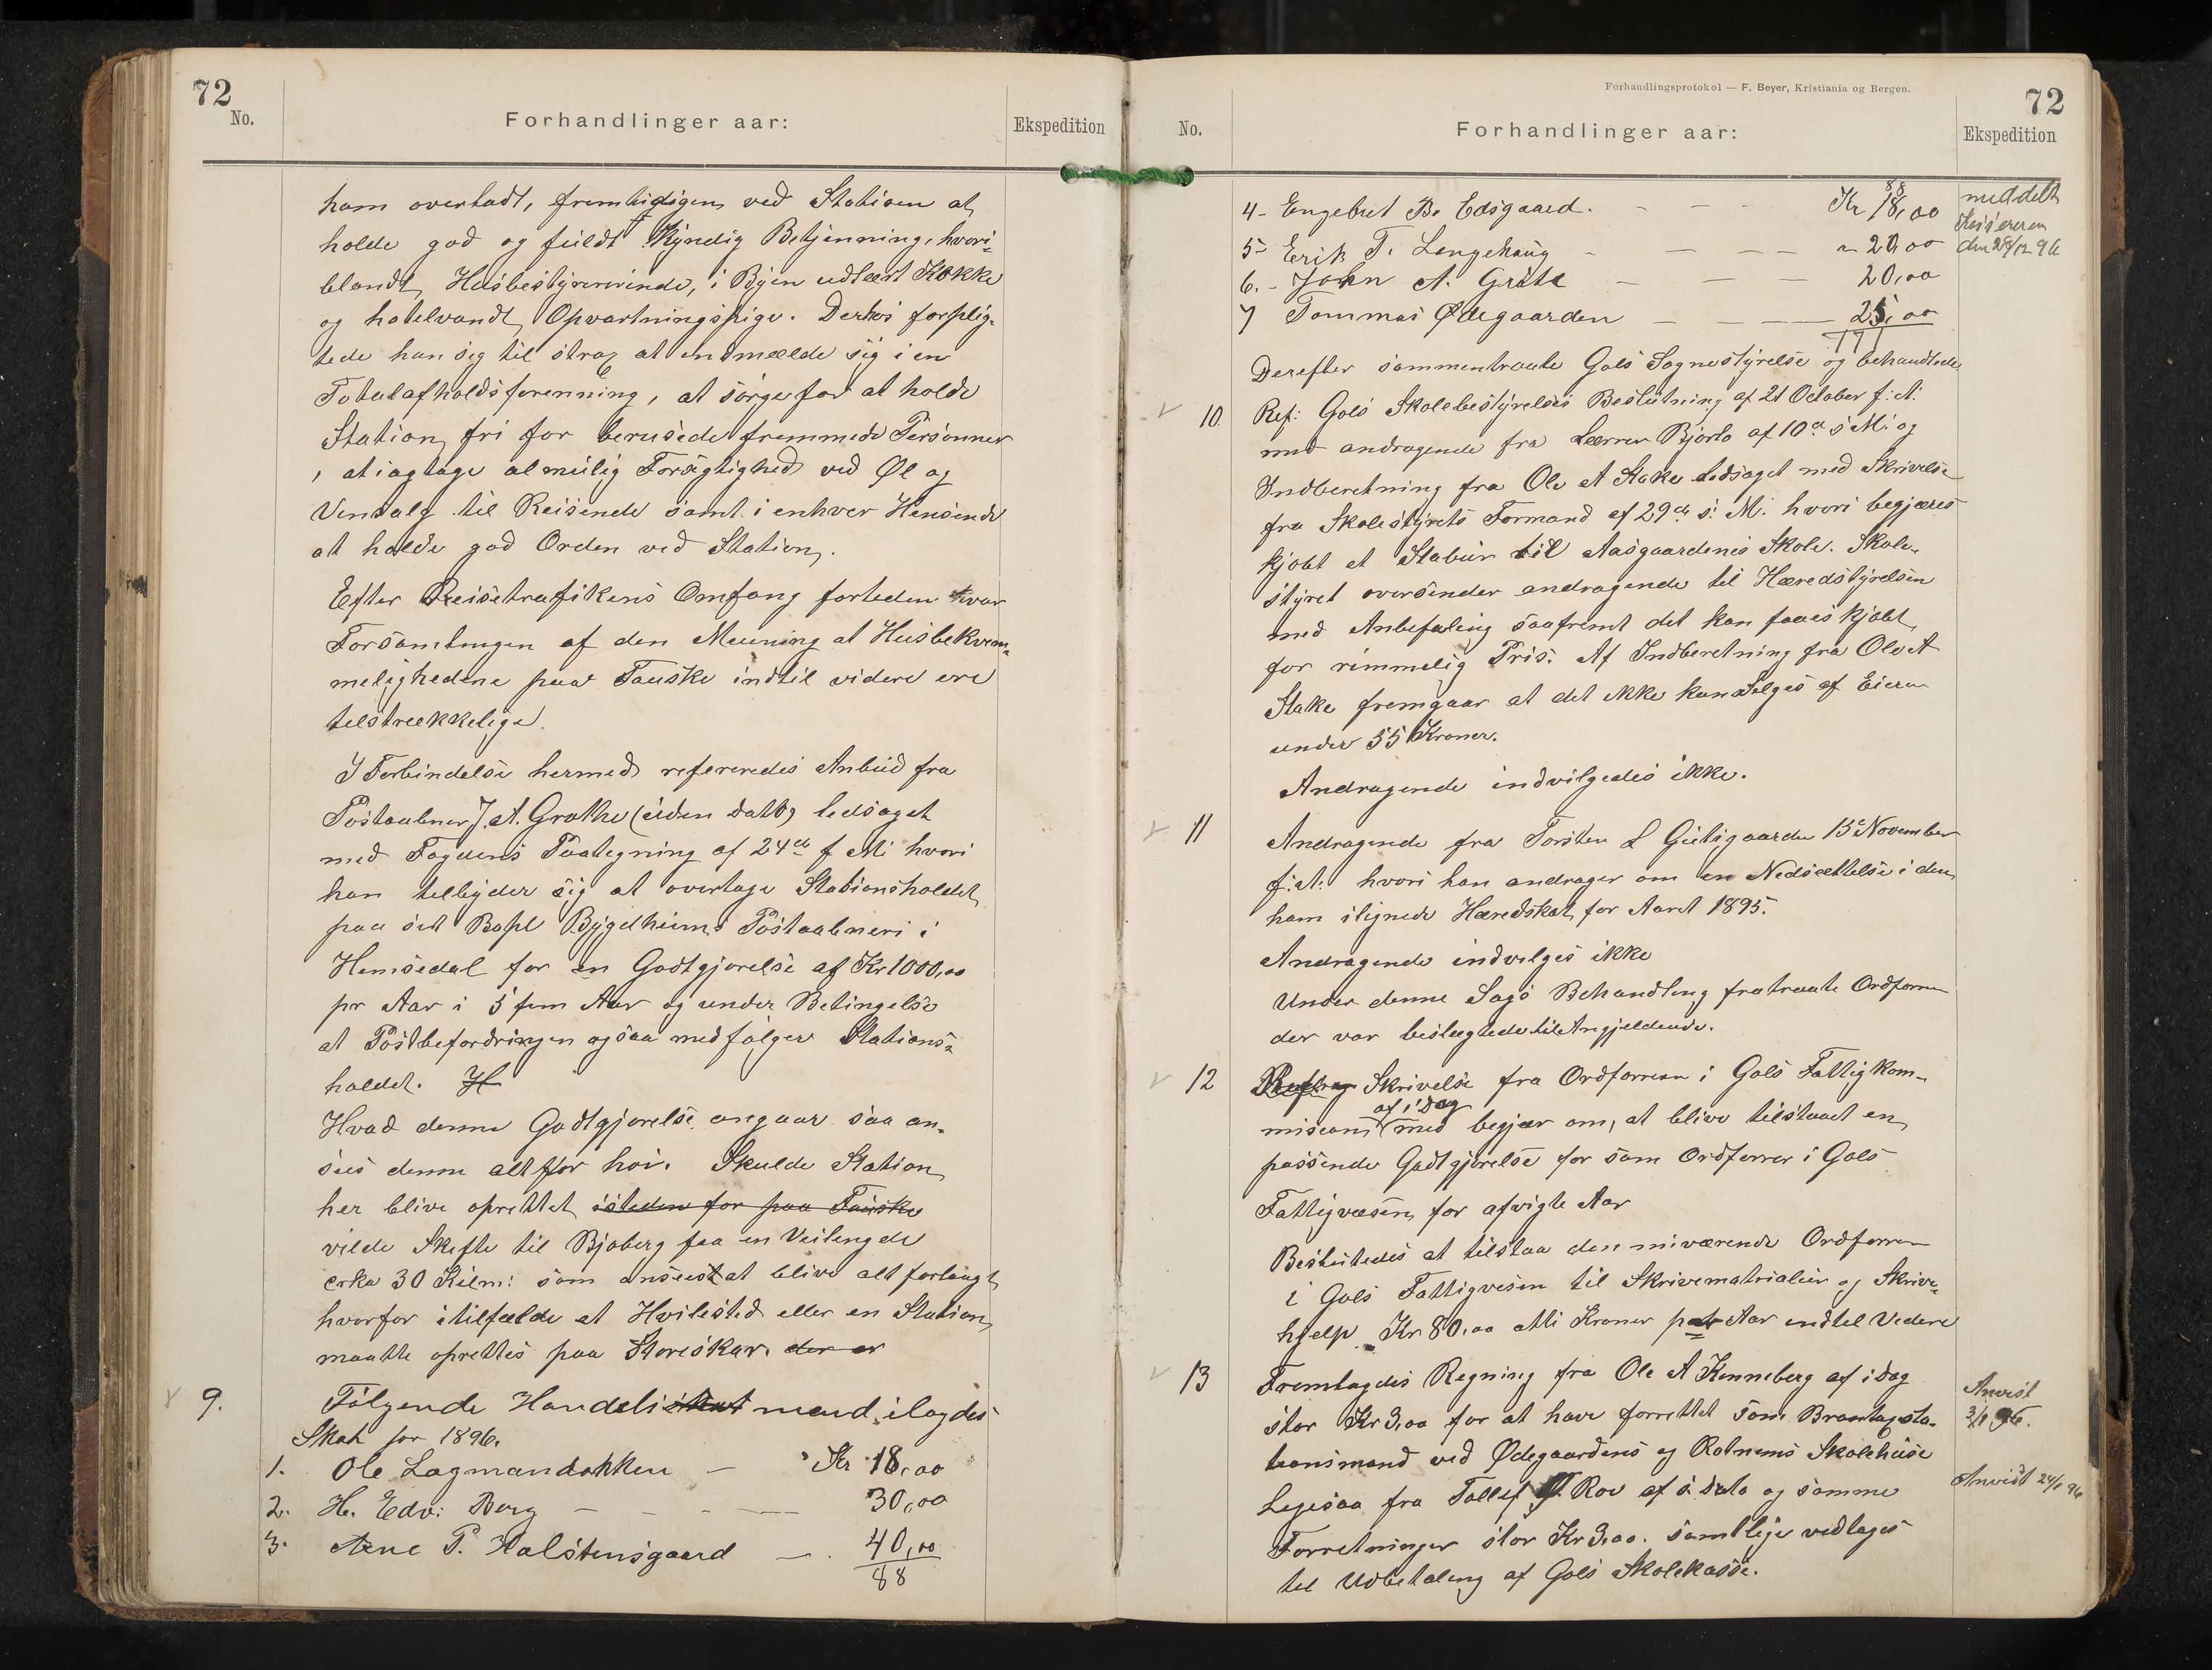 72
No.
Forhandlinger aar:
Ekspedition
ham overladt, fremtidigen ved Stationen at
holde god og fuldt kyndig Betjenning, hvori-
blandt Husbestyrerinde, i Byen udlært Kokke
og hotelvandt Opvartningspige. Derhos forplig-
tede han sig til strax at indmælde sig i en
Totalafholdsforenning, at sørge for at holde
Station fri for berusede fremmede Personner
, at iagtage almulig Forsigtighed ved Øl og
Vinsalg til Reisende samt i enhver Henseende
at holde god Orden ved Station.
Efter Reisetrafikens Omfang forteden var
Forsamlingen af den Menning at Husbekvem-
melighedene paa Fauske indtil videre ere
tilstrækkelige.
I Forbindelse hermed refereredes Anbud fra
Postaabner J. A. Grøthe (uden Dato) ledsaget
med Fogdens Paategning af 24de f. M. hvori
han tilbyder sig at overtage Stationsholdet
paa sit Bopl Bygdheim Postaabneri i
Hemsedal for en Godtgjørelse af Kr 1000,00
pr Aar i 5 fem Aar og under Betingelse
at Postbefordringen ogsaa medfølger Stations-
holdet. H
Hvad denne Godtgjørelse angaar saa an-
sees denne altfor høi. Skulde Station
her blive oprettet isteden for paa Fauske
vilde Skifte til Bjøberg faa en Veilengde
cirka 30 Kilm: som ansees at blive alt forlangt
hvorfor i tilfælde et Hvilested eller en Station
maatte oprettes paa Storeskar. der er
9.
Følgende Handelsmænd ilagdes
Skat for 1896.
1. Ole Lagmandokken — Kr 18,00
2. H. Edv: Berg — — — 30,00
3. Arne P. Halstensgaard — . 40,00
88
Forhandlingsprotokol — F. Beyer, Kristiania og Bergen.
72
No.
Forhandlinger aar:
Ekspedition
88
4- Engebret B. Edsgaard. - - - Kr 18,00
meddelt
Kasisereren
den 28/12 96
5- Erik T. Lengehaug - — — " 20,00
6.- John A. Grøte — — — 20,00
7 Tommas Ødegaarden — — — 25,00
171
Derefter sammentraate Gols Sognestyrelse og behandlede
10. Ref: Gols Skolebestyrelses Beslutning af 21 October f: A:
med andragende fra Lærer Bjørlo af 10de s. M. og
Indberetning fra Ole A Stake ledsaget med Skrivelse
fra Skolestyrets Formand af 29de s: M: hvori begjæres
kjøbt et Stabur til Aasgaardenes Skole. Skole-
styret oversender andragende til Hæredstyrelsen
med Anbefaling saafremt det kan faaes kjøbt
for rimmelig Pris. Af Indberetning fra Ole A
Stake fremgaar at det ikke kan selges af Eieren
under 55 Kroner.
Andragende indvilgedes ikke.
11 Andragende fra Torsten L Guligaarden 15de November
f: A: hvori han andrager om en Nedsættelse i den
ham ilignede Hæredskat for Aaret 1895.
Andragende indvilges ikke
Under denne Sags Behandling fratraate Ordføren
der var beslægtede til Angjeldende.
12 Skrivelse fra Ordføreren i Gols Fattigkom-
af i Dag
mision med begjær om, at blive tilstaaet en
passende Godtgjørelse for som Ordfører i Gols
Fattigvæsen for afvigte Aar
Beslutedes at tilstaa den nuværende Ordfører
i Gols Fattigvesen til Skrivematrialier og Skrive-
hjelp Kr 80,00 otti Kroner pr Aar indtil Videre
13 Fremlagdes Regning fra Ole A Kinneberg af i Dag
Anvist
3/1 96.
stor Kr 3,00 for at have forrettet som Branntagsta-
tionsmand ved Ødegaardens og Rotnems Skolehuse
Anvist 24/1 96
Legesaa fra Tollef T. Rov af s. dato og samme
Forretninger stor Kr 3,00. samtlige vedtages
til Udbetaling af Gols Skolekasse.